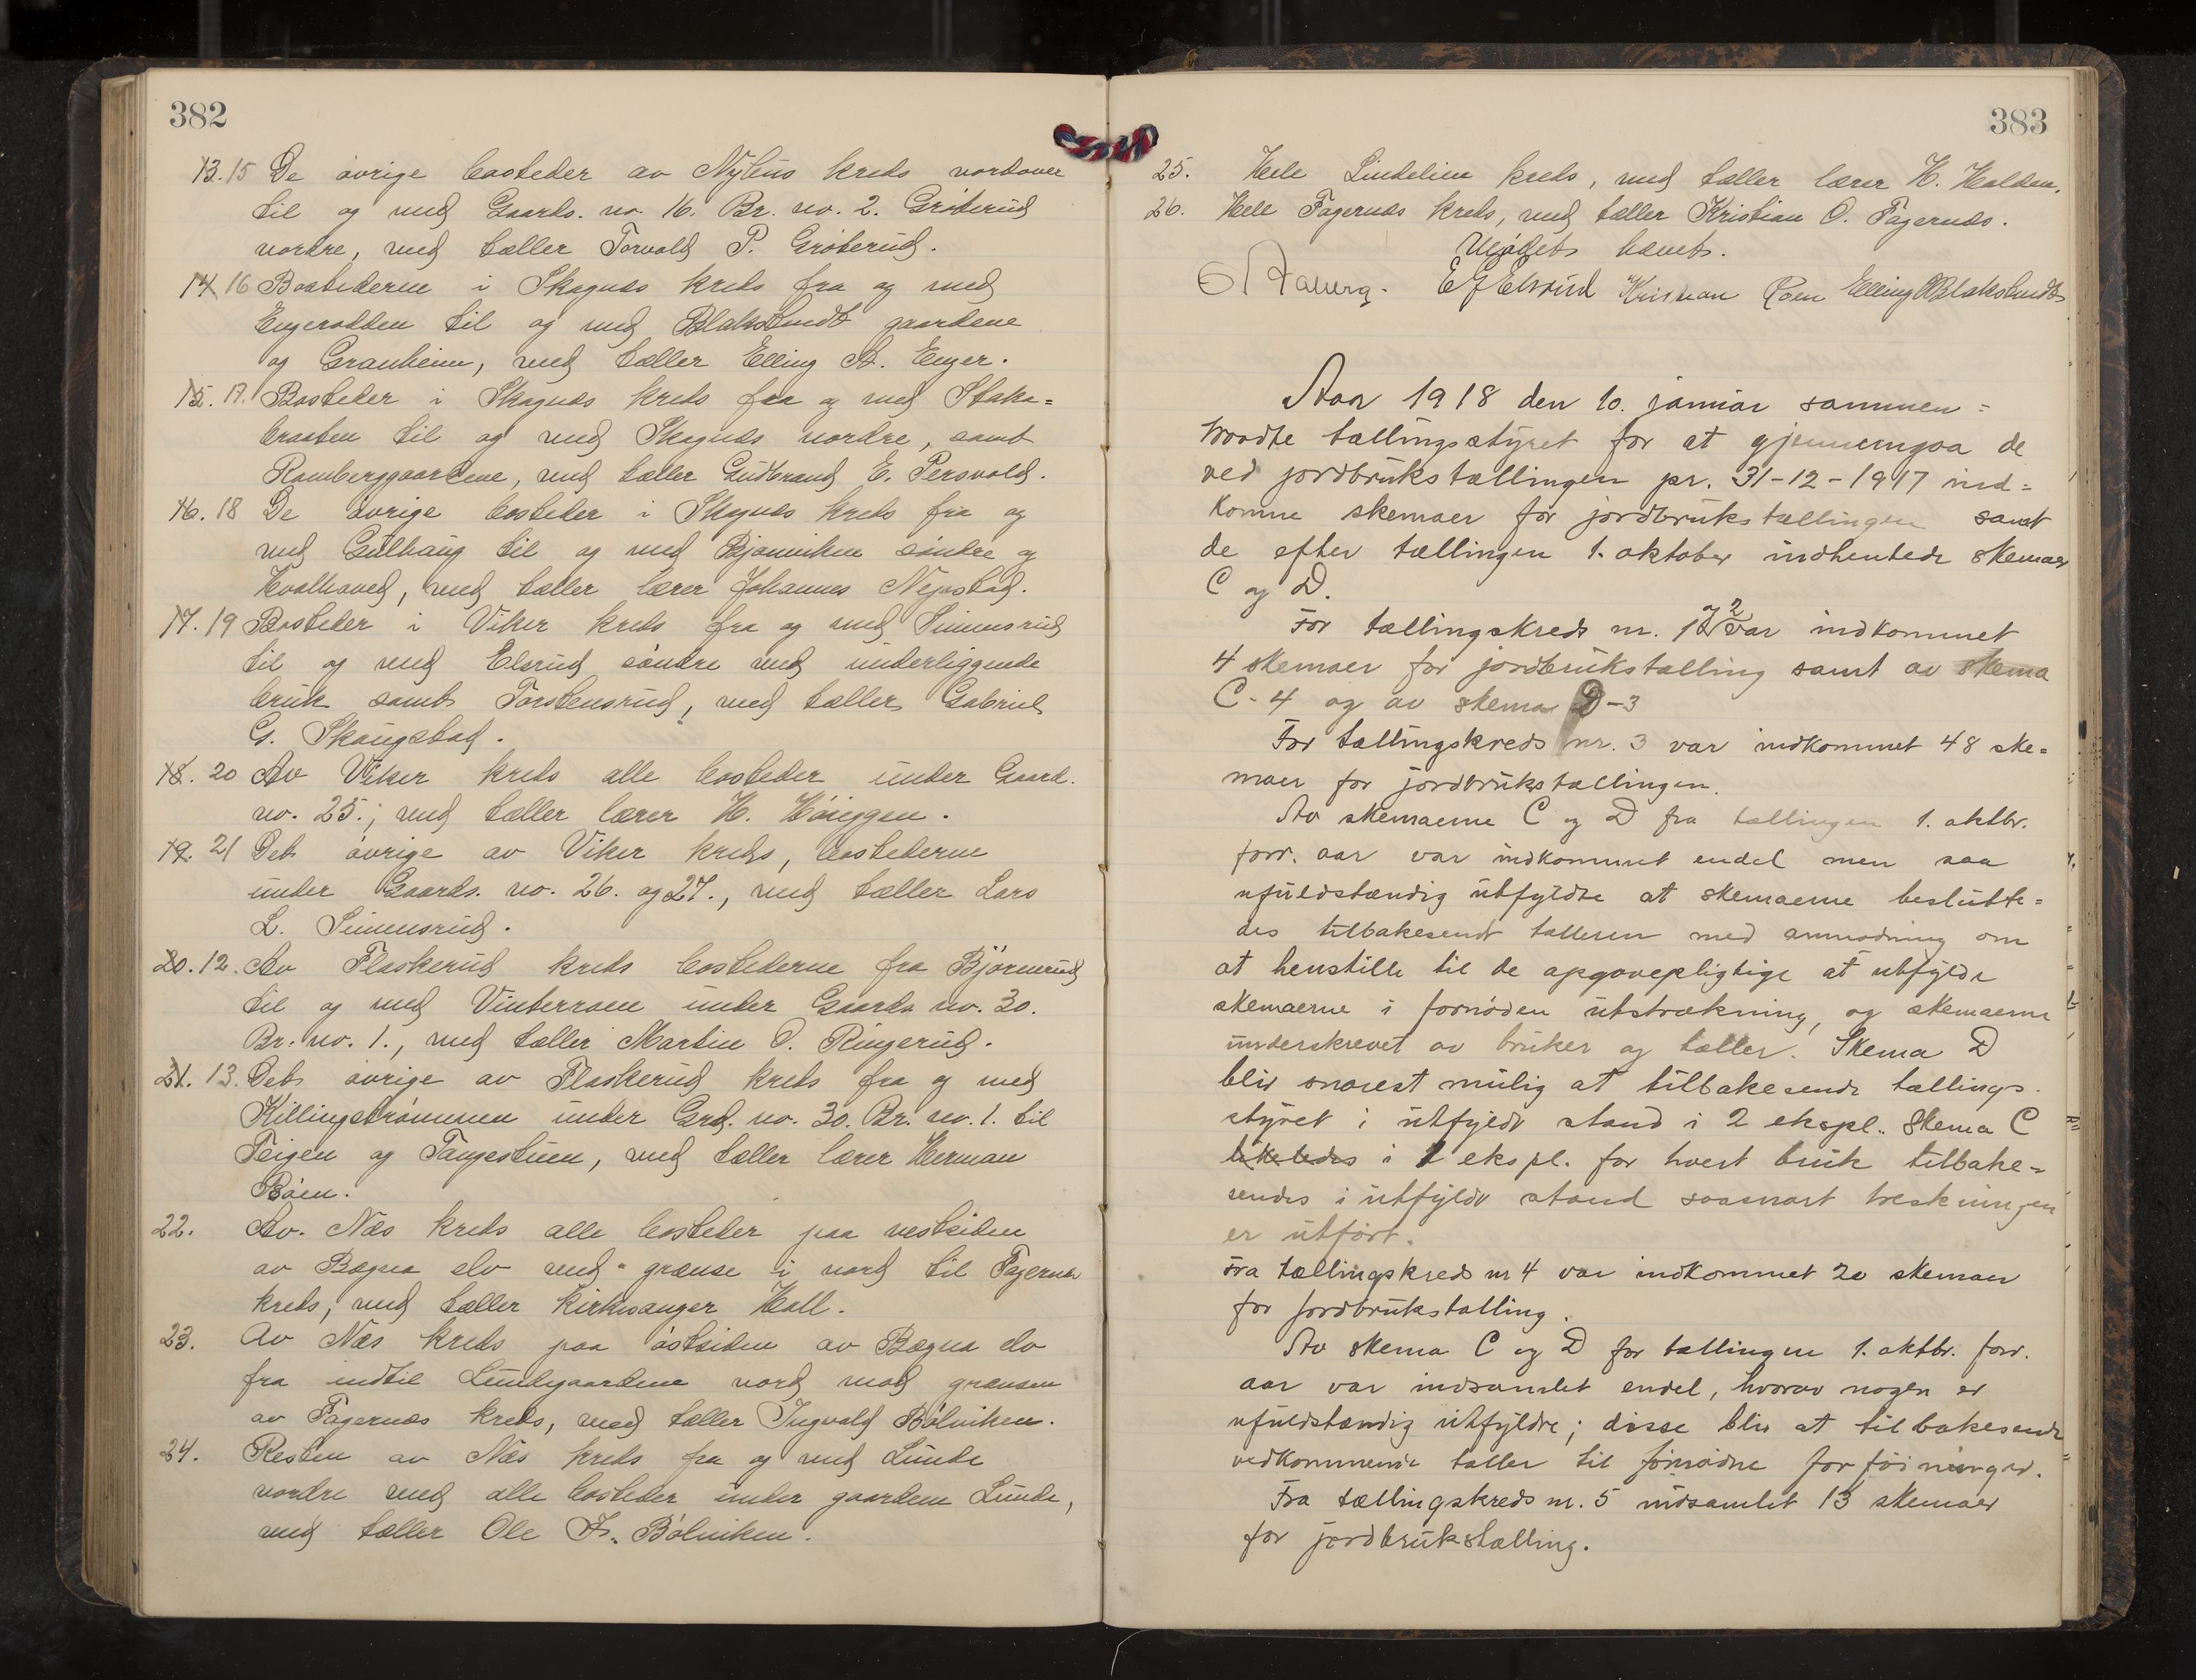 382
13. 15 De øvrige bosteder av Nylens kreds nordover
til og med Gaards. no. 16. Br. no. 2. Grøterud
nordre, med tæller Torvald P. Grøterud.
14 16 Bostederne i Skagnæs kreds fra og med
Engerodden til og med Blakstvedt gaardene
og Granheim, med tæller Elling A. Enger.
15. 17. Bosteder i Skagnæs kreds fra og med Stake=
braaten til og med Skagnæs nordre, samt
Ramberggaardene, med tæller Gudbrand E. Persvold.
16. 18 De øvrige bosteder i Skagnæs kreds fra og
med Gulhaug til og med Bjønviken søndre og
Hvalhoved, med tæller lærer Johannes
17. 19 Bosteder i Viker kreds fra og med Simensrud
til og med Elsrud søndre med underliggende
bruk samt Torstensrud, med tæller Gabriel
G. Skougstad.
18. 20 Av Viker kreds alle bosteder under Gaard.
no. 25., med tæller lærer H.
19. 21 Det øvrige av Viker kreds, bostederne
under Gaards. no. 26. og 27., med tæller Lars
L. Simensrud.
20. 12. Av Flaskerud kreds bostederne fra Bjørnerud
til og med Vinterroen under Gaards no. 30.
Br. no. 1., med tæller Martin O. Ringerud.
21. 13. Det øvrige av Flaskerud kreds fra og med
Killingstrømmen under Grd. no. 30. Br. no. 1. til
Teigen og Tangestuen, med tæller lærer Herman
Bøen.
22. Av. Næs kreds alle bosteder paa vestsiden
av Bægna elv med grænse i nord til Fagernæs
kreds, med tæller kirkesanger Hall.
23. Av Næs kreds paa østsiden av Bægna elv
fra indtil Lundegaardene nord mod grænsen
av Fagernæs kreds, med tæller Ingvald Bølviken.
24. Resten av Næs kreds fra og med Lunde
nordre med alle bosteder under gaardene Lunde,
med tæller Ole Bølviken.
383
25. Hele Lindelien kreds, med tæller lærer H. Halden.
26. Hele Fagernæs kreds, med tæller Kristian O. Fagernæs.
Mødet hævet.
E G Elsrud Kristian Roen Elling Blakstvedt
Aar 1918 den 10. januar sammen=
traadte tællingsstyret for at gjennemgaa de
ved jordbrukstællingen pr. 31-12-1917 ind=
komne skemaer for jordbrukstællingen samt
de efter tællingen 1. oktober indhentede skemaer
C og D.
For tællingskreds nr. 1 og 2 var indkommet
4 skemaer for jordbrukstælling samt av skema
C-4 og av skema D-3
For tællingskreds nr. 3 var indkommet 48 ske=
maer for jordbrukstællingen.
Av skemaerne C og D fra tællingen 1. oktbr.
forr. aar var indkommet endel men saa
ufuldstændig utfyldte at skemaerne beslutte=
des tilbakesendt tælleren med anmodning om
at henstille til de opgavepligtige at utfylde
skemaerne i fornøden utstrækning, og skemaerne
underskrevet av bruker og tæller. Skema D
blir snarest mulig at tilbakesende tællings-
styret i utfyldt stand i 2 ekspl. Skema C
likeledes i 1 ekspl. for hvert bruk tilbake=
sendes i utfyldt stand saasnart treskningen
er utført.
Fra tællingskreds nr 4 var indkommet 20 skemaer
for jordbrukstælling.
Av skema C og D for tællingen 1. oktbr. forr.
aar var indsamlet endel, hvorav nogen er
ufuldstændig utfyldte; disse blir at tilbakesende
vedkommende tæller til fornødne forføininger.
Fra tællingskreds nr. 5 indsamlet 13 skemaer
for jordbrukstælling.